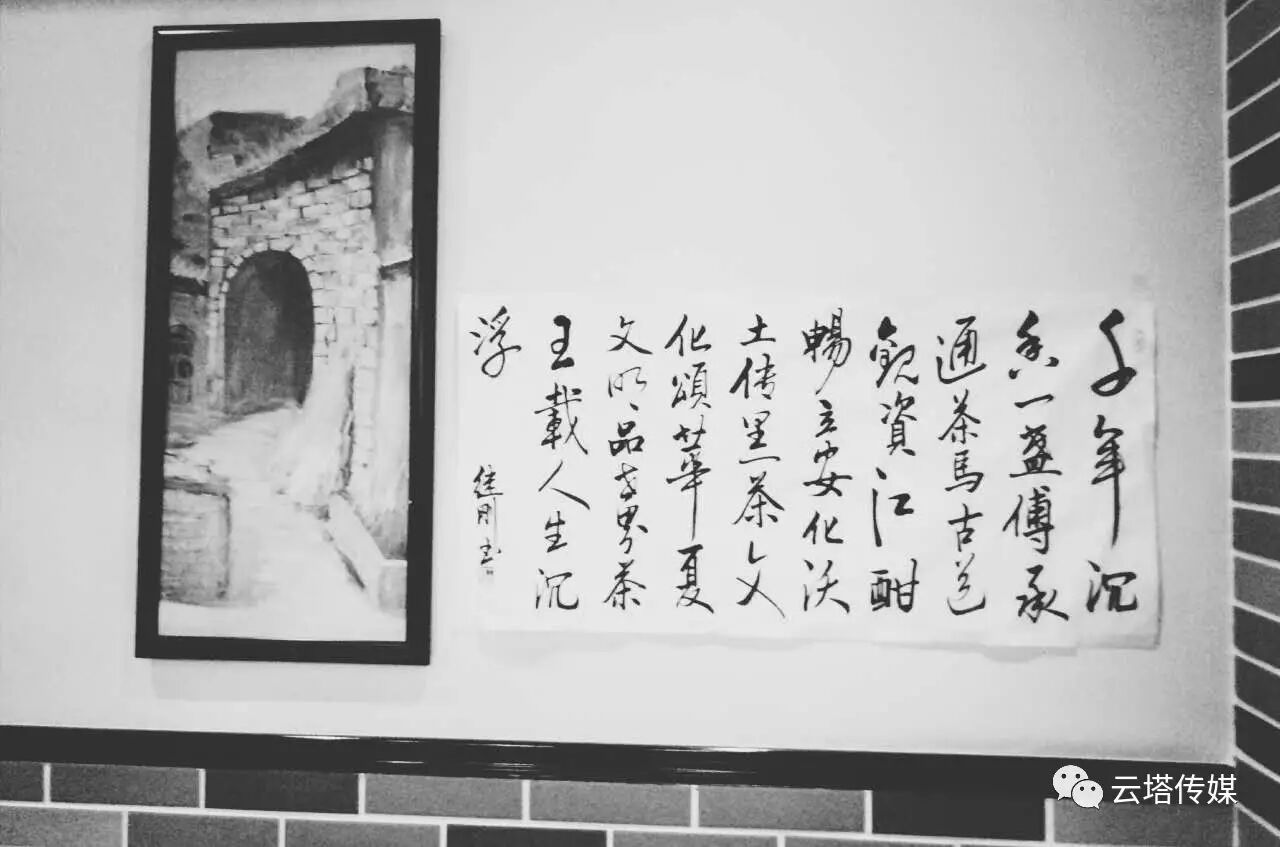 千年沉
香一盏傅承
通茶馬古道
觀資江酣
暢立安化沃
土传黑茶文
化頌華夏
文明品世界茶
王載人生沉
浮
刚书
云塔传媒